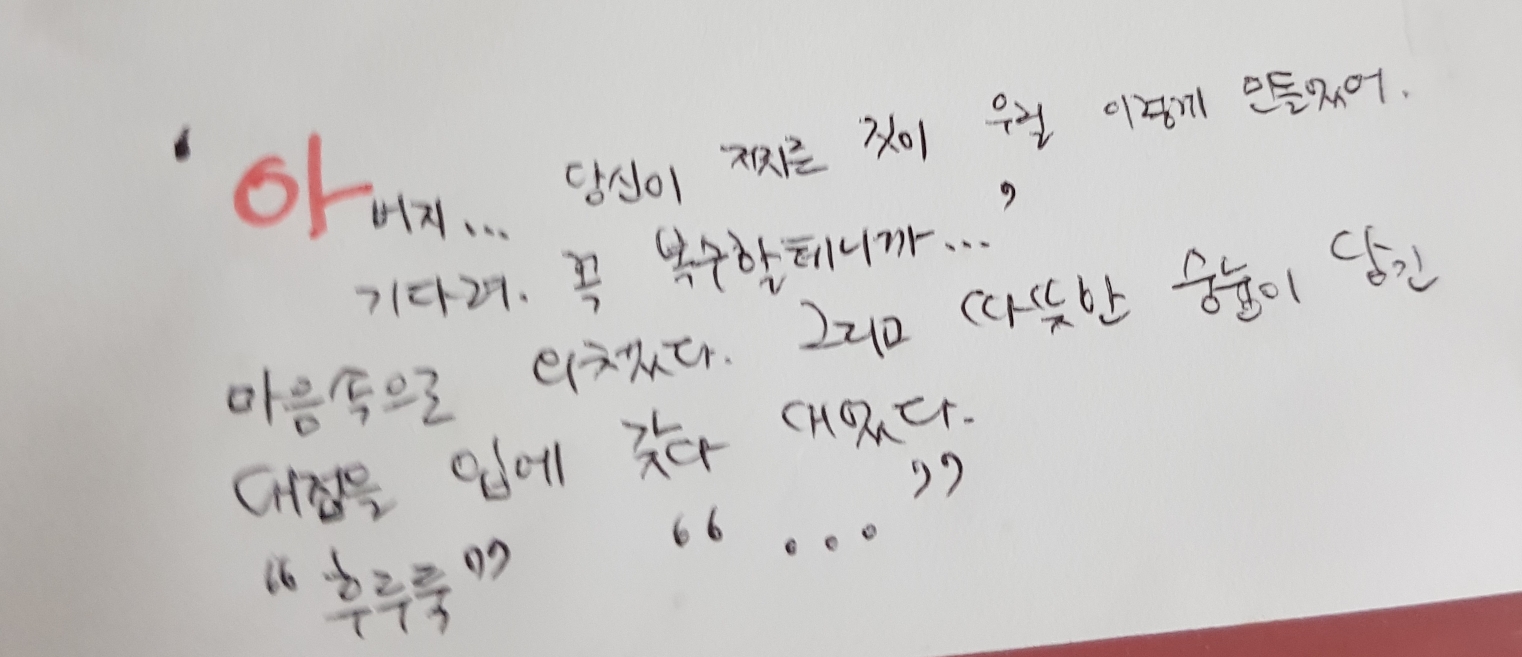 ‘아버지... 당신이 저지른 것이 우릴 이렇게 만들었어.
기다려. 꼭 복수할테니까...’
마음속으로 외쳤었다. 그리고 따뜻한 숭늉이 담긴
대접을 입에 갖다 대었다.
“후루룩” “...”